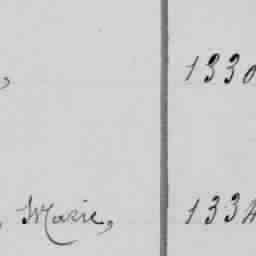 , 1330
, Marie, 1334